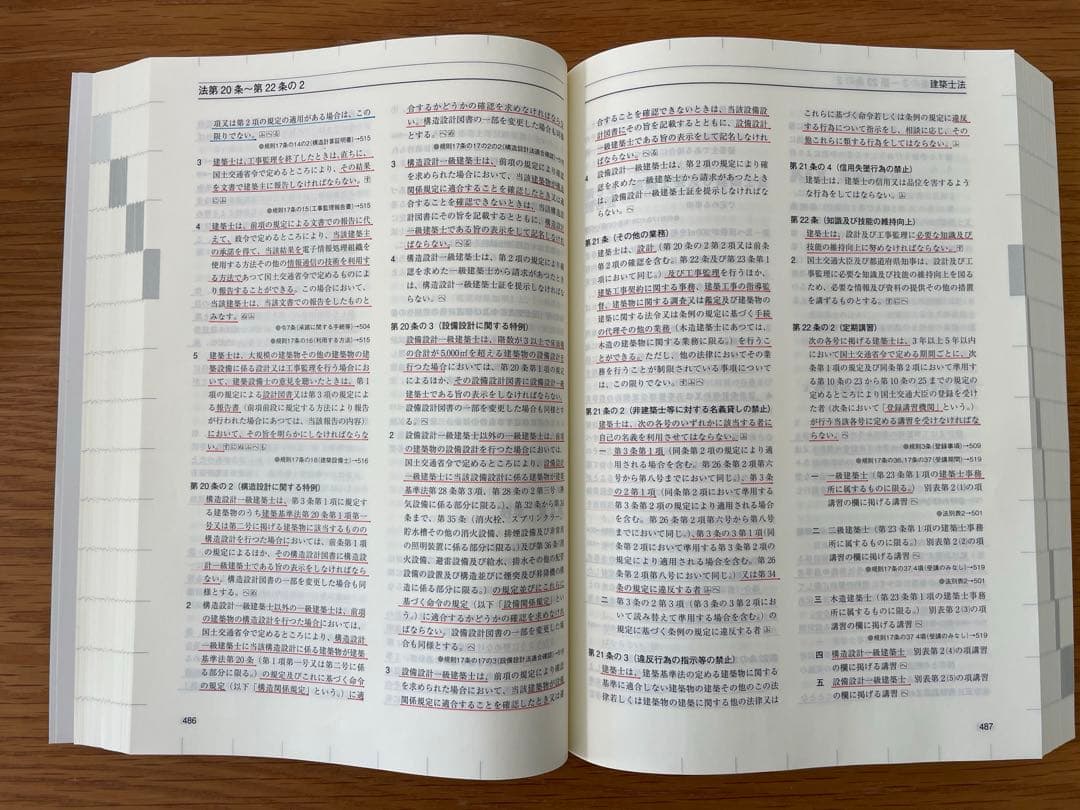 法第20条～第22条の2
項又は第2項の規定の適用がある場合は、この
限りでない。
●規則17条の14の2(構造計算証明書)→515
3 建築士は、工事監理を終了したときは、直ちに、
国土交通省令で定めるところにより、その結果
を文書で建築主に報告しなければならない。
●規則17条の15(工事監理報告書)→515
4 建築士は、前項の規定による文書での報告に代
えて、政令で定めるところにより、当該建築主
の承諾を得て、当該結果を電子情報処理組織を
使用する方法その他の情報通信の技術を利用す
る方法であつて国土交通省令で定めるものによ
り報告することができる。この場合において、
当該建築士は、当該文書での報告をしたものと
みなす。
●令7条(承諾に関する手続等)→504
●規則17条の16(利用する方法)→515
5 建築士は、大規模の建築物その他の建築物の建
築設備に係る設計又は工事監理を行う場合にお
いて、建築設備士の意見を聴いたときは、第1
項の規定による設計図書又は第3項の規定によ
る報告書(前項前段に規定する方法により報告
が行われた場合にあつては、当該報告の内容)
において、その旨を明らかにしなければならな
い。
●規則17条の18(建築設備士)→516
第20条の2(構造設計に関する特例)
構造設計一級建築士は、第3条第1項に規定す
る建築物のうち建築基準法第20条第1項第一
号又は第二号に掲げる建築物に該当するものの
構造設計を行つた場合においては、前条第1項
の規定によるほか、その構造設計図書に構造設
計一級建築士である旨の表示をしなければなら
ない。構造設計図書の一部を変更した場合も同
様とする。
2 構造設計一級建築士以外の一級建築士は、前項
の建築物の構造設計を行つた場合においては、
国土交通省令で定めるところにより、構造設計
一級建築士に当該構造設計に係る建築物が建築
基準法第20条(第1項第一号又は第二号に係
る部分に限る。)の規定及びこれに基づく命令
の規定(以下「構造関係規定」という。)に適
486
合するかどうかの確認を求めなければならな
い。構造設計図書の一部を変更した場合も同様
とする。
●規則17条の17の2(構造設計法適合確認)→516
3 構造設計一級建築士は、前項の規定により確認
を求められた場合において、当該建築物が構造
関係規定に適合することを確認したとき又は適
合することを確認できないときは、当該構造設
計図書にその旨を記載するとともに、構造設計
一級建築士である旨の表示をして記名しなけれ
ばならない。
4 構造設計一級建築士は、第2項の規定により確
認を求めた一級建築士から請求があつたとき
は、構造設計一級建築士証を提示しなければな
らない。
第20条の3(設備設計に関する特例)
設備設計一級建築士は、階数が3以上で床面積
の合計が5,000㎡を超える建築物の設備設計を
行つた場合においては、第20条第1項の規定
によるほか、その設備設計図書に設備設計一級
建築士である旨の表示をしなければならない。
設備設計図書の一部を変更した場合も同様とす
る。
2 設備設計一級建築士以外の一級建築士は、前項
の建築物の設備設計を行つた場合においては、
国土交通省令で定めるところにより、設備設計
一級建築士に当該設備設計に係る建築物が建築
基準法第28条第3項、第28条の2第三号(換
気設備に係る部分に限る。)、第32条から第34
条まで、第35条(消火栓、スプリンクラー、
貯水槽その他の消火設備、排煙設備及び非常用
の照明装置に係る部分に限る。)及び第36条(消
火設備、避雷設備及び給水、排水その他の配管
設備の設置及び構造並びに煙突及び昇降機の構
造に係る部分に限る。)の規定並びにこれらに
基づく命令の規定(以下「設備関係規定」とい
う。)に適合するかどうかの確認を求めなけれ
ばならない。設備設計図書の一部を変更した場
合も同様とする。
●規則17条の17の3(設備設計法適合確認)→516
3 設備設計一級建築士は、前項の規定により確認
を求められた場合において、当該建築物が設備
関係規定に適合することを確認したとき又は適
建築士法
合することを確認できないときは、当該設備設
計図書にその旨を記載するとともに、設備設計
一級建築士である旨の表示をして記名しなけれ
ばならない。
4 設備設計一級建築士は、第2項の規定により確
認を求めた一級建築士から請求があつたとき
は、設備設計一級建築士証を提示しなければな
らない。
第21条(その他の業務)
建築士は、設計(第20条の2第2項又は前条
第2項の確認を含む。第22条及び第23条第1
項において同じ。)及び工事監理を行うほか、
建築工事契約に関する事務、建築工事の指導監
督、建築物に関する調査又は鑑定及び建築物の
建築に関する法令又は条例の規定に基づく手続
の代理その他の業務(木造建築士にあつては、
木造の建築物に関する業務に限る。)を行うこ
とができる。ただし、他の法律においてその業
務を行うことが制限されている事項について
は、この限りでない。
第21条の2(非建築士等に対する名義貸しの禁止)
建築士は、次の各号のいずれかに該当する者に
自己の名義を利用させてはならない。
一 第3条第1項(同条第2項の規定により適
用される場合を含む。第26条第2項第六
号から第八号までにおいて同じ。)、第3条
の2第1項(同条第2項において準用する
第3条第2項の規定により適用される場合
を含む。第26条第2項第六号から第八号
までにおいて同じ。)、第3条の3第1項(同
条第2項において準用する第3条第2項の
規定により適用される場合を含む。第26
条第2項第八号において同じ。)又は第34
条の規定に違反する者
二 第3条の2第3項(第3条の3第2項にお
いて読み替えて準用する場合を含む。)の
規定に基づく条例の規定に違反する者
第21条の3(違反行為の指示等の禁止)
建築士は、建築基準法の定める建築物に関する
基準に適合しない建築物の建築その他のこの法
律若しくは建築物の建築に関する他の法律又は
これらに基づく命令若しくは条例の規定に違反
する行為について指示をし、相談に応じ、その
他これらに類する行為をしてはならない。
第21条の4(信用失墜行為の禁止)
建築士は、建築士の信用又は品位を害するよう
な行為をしてはならない。
第22条(知識及び技能の維持向上)
建築士は、設計及び工事監理に必要な知識及び
技能の維持向上に努めなければならない。
2 国土交通大臣及び都道府県知事は、設計及び工
事監理に必要な知識及び技能の維持向上を図る
ため、必要な情報及び資料の提供その他の措置
を講ずるものとする。
第22条の2(定期講習)
次の各号に掲げる建築士は、3年以上5年以内
において国土交通省令で定める期間ごとに、次
条第1項の規定及び同条第2項において準用す
る第10条の23から第10条の25までの規定の
定めるところにより国土交通大臣の登録を受け
た者(次条において「登録講習機関」という。)
が行う当該各号に定める講習を受けなければな
らない。
●規則3条(登録事項)→509
●規則17条の36,17条の37(受講期間)→519
一 一級建築士(第23条第1項の建築士事務
所に属するものに限る。) 別表第2(1)の項
講習の欄に掲げる講習
●法別表2→501
二 二級建築士(第23条第1項の建築士事務
所に属するものに限る。) 別表第2(2)の項
講習の欄に掲げる講習
●規則17条の37 4項(受講のみなし)→519
●法別表2→501
三 木造建築士(第23条第1項の建築士事務
所に属するものに限る。) 別表第2(3)の項
講習の欄に掲げる講習
●規則17条の37 4項(受講のみなし)→519
四 構造設計一級建築士 別表第2(4)の項講習
の欄に掲げる講習
五 設備設計一級建築士 別表第2(5)の項講習
の欄に掲げる講習
487